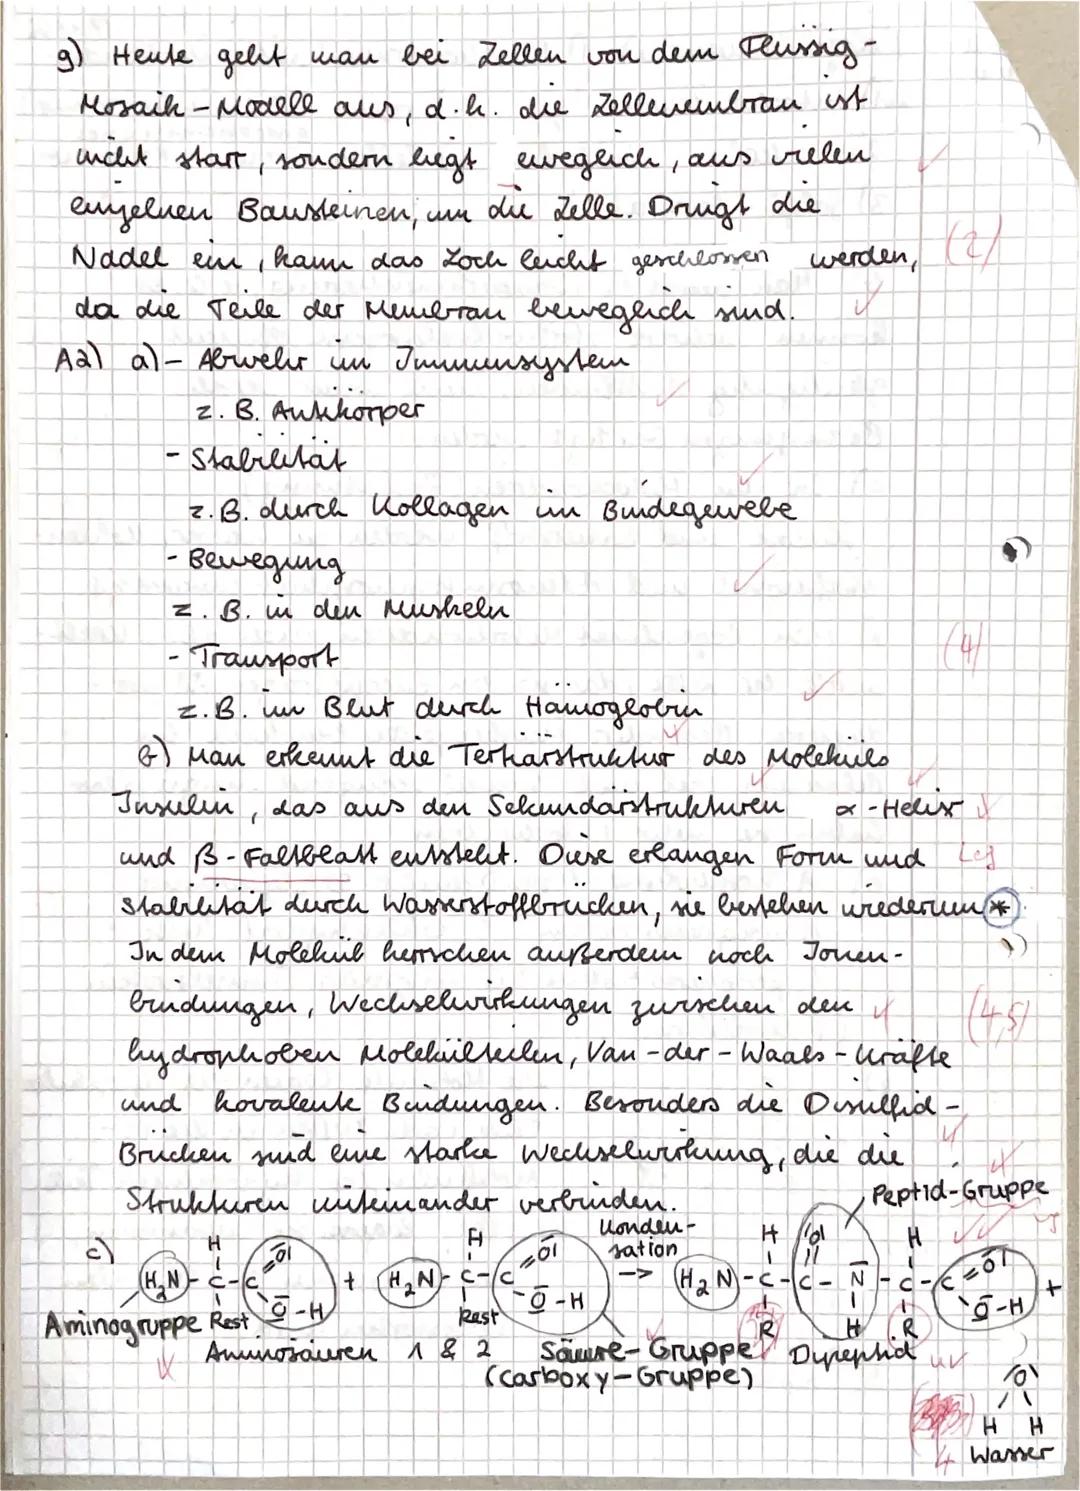 g) Heute geht man bei Zellen von dem Flüssig-
Mosaik-Modell aus, d.h. die Zellmembran ist
nicht starr, sondern liegt eweglich, aus vielen
einzelnen Bausteinen, um die Zelle. Dringt die
Nadel ein, kann das Loch leicht geschlossen werden,
(2)
da die Teile der Membran beweglich sind.
A2) a) - Abwehr im Immunsystem
z. B. Antikörper
- Stabilität
z.B. durch Kollagen im Bindegewebe
- Bewegung
z. B. in den Muskeln
- Transport
(4)
z.B. im Blut durch Hämoglobin
b) Man erkennt die Tertiärstruktur des Moleküls
Insulin, das aus den Sekundärstrukturen α-Helix
und β-Faltblatt entsteht. Diese erlangen Form und
Stabilität durch Wasserstoffbrücken, sie bestehen wiederum *
In dem Molekül herrschen außerdem noch Ionen-
bindungen, Wechselwirkungen zwischen den
(4,5)
hydrophoben Molekülteilen, Van-der-Waals-Kräfte
und kovalente Bindungen. Besonders die Disulfid-
Brücken sind eine starke Wechselwirkung, die die
Strukturen miteinander verbinden.
Peptid-Gruppe
c)
Konden-
sation
H H H |O| H
H₂N-C-C O| + H₂N-C-C O| -> H₂N-C-C-N-C-C O| +
O-H O-H O-H
Rest Rest R H R
Aminogruppe
Aminosäuren 1 & 2 Säure-Gruppe Dipeptid
(Carboxy-Gruppe)
O
H H
4 Wasser